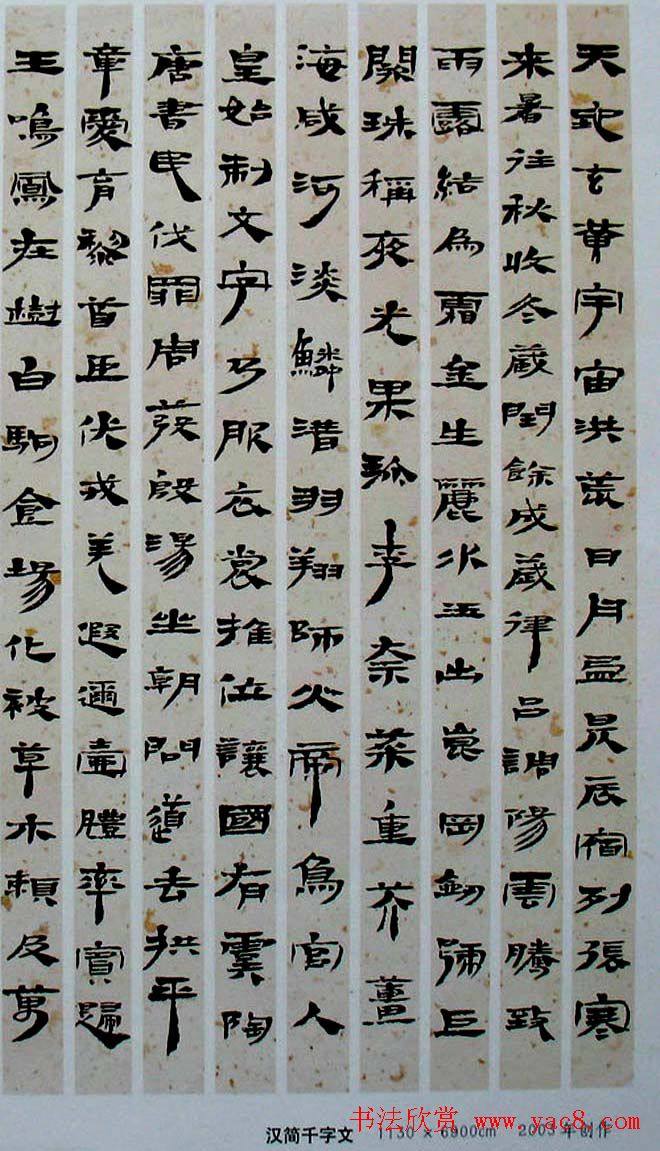 天地玄黄宇宙洪荒日月盈昃辰宿列張寒
来暑往秋收冬藏閏餘成歲律吕調陽雲騰致
雨露結為霜金生麗水玉出崑岡劒號巨
闕珠稱夜光果珎李柰菜重芥薑
海咸河淡鱗潛羽翔師火帝鳥官人
皇始制文字乃服衣裳推位讓國有虞陶
唐書民伐罪周發殷湯坐朝問道去拱平
章愛育黎首臣伏戎羌遐邇壹體率賓歸
王鳴鳳在樹白駒食場化被草木賴及萬
汉简千字文 1130 × 6900cm 2003年创作
书法欣赏 www.yac8.com